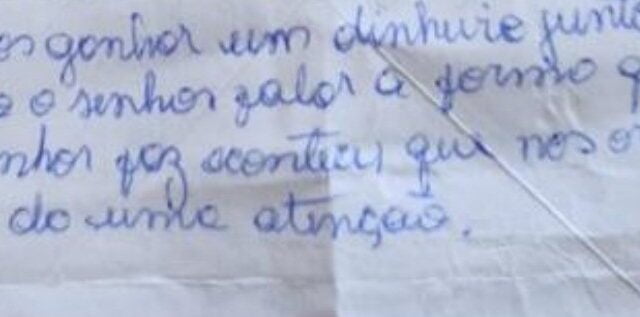 os gonhor um dinhurie junt
o o senhor falar a formo q
nhor foz acontecer que nos o
do uma atenção.